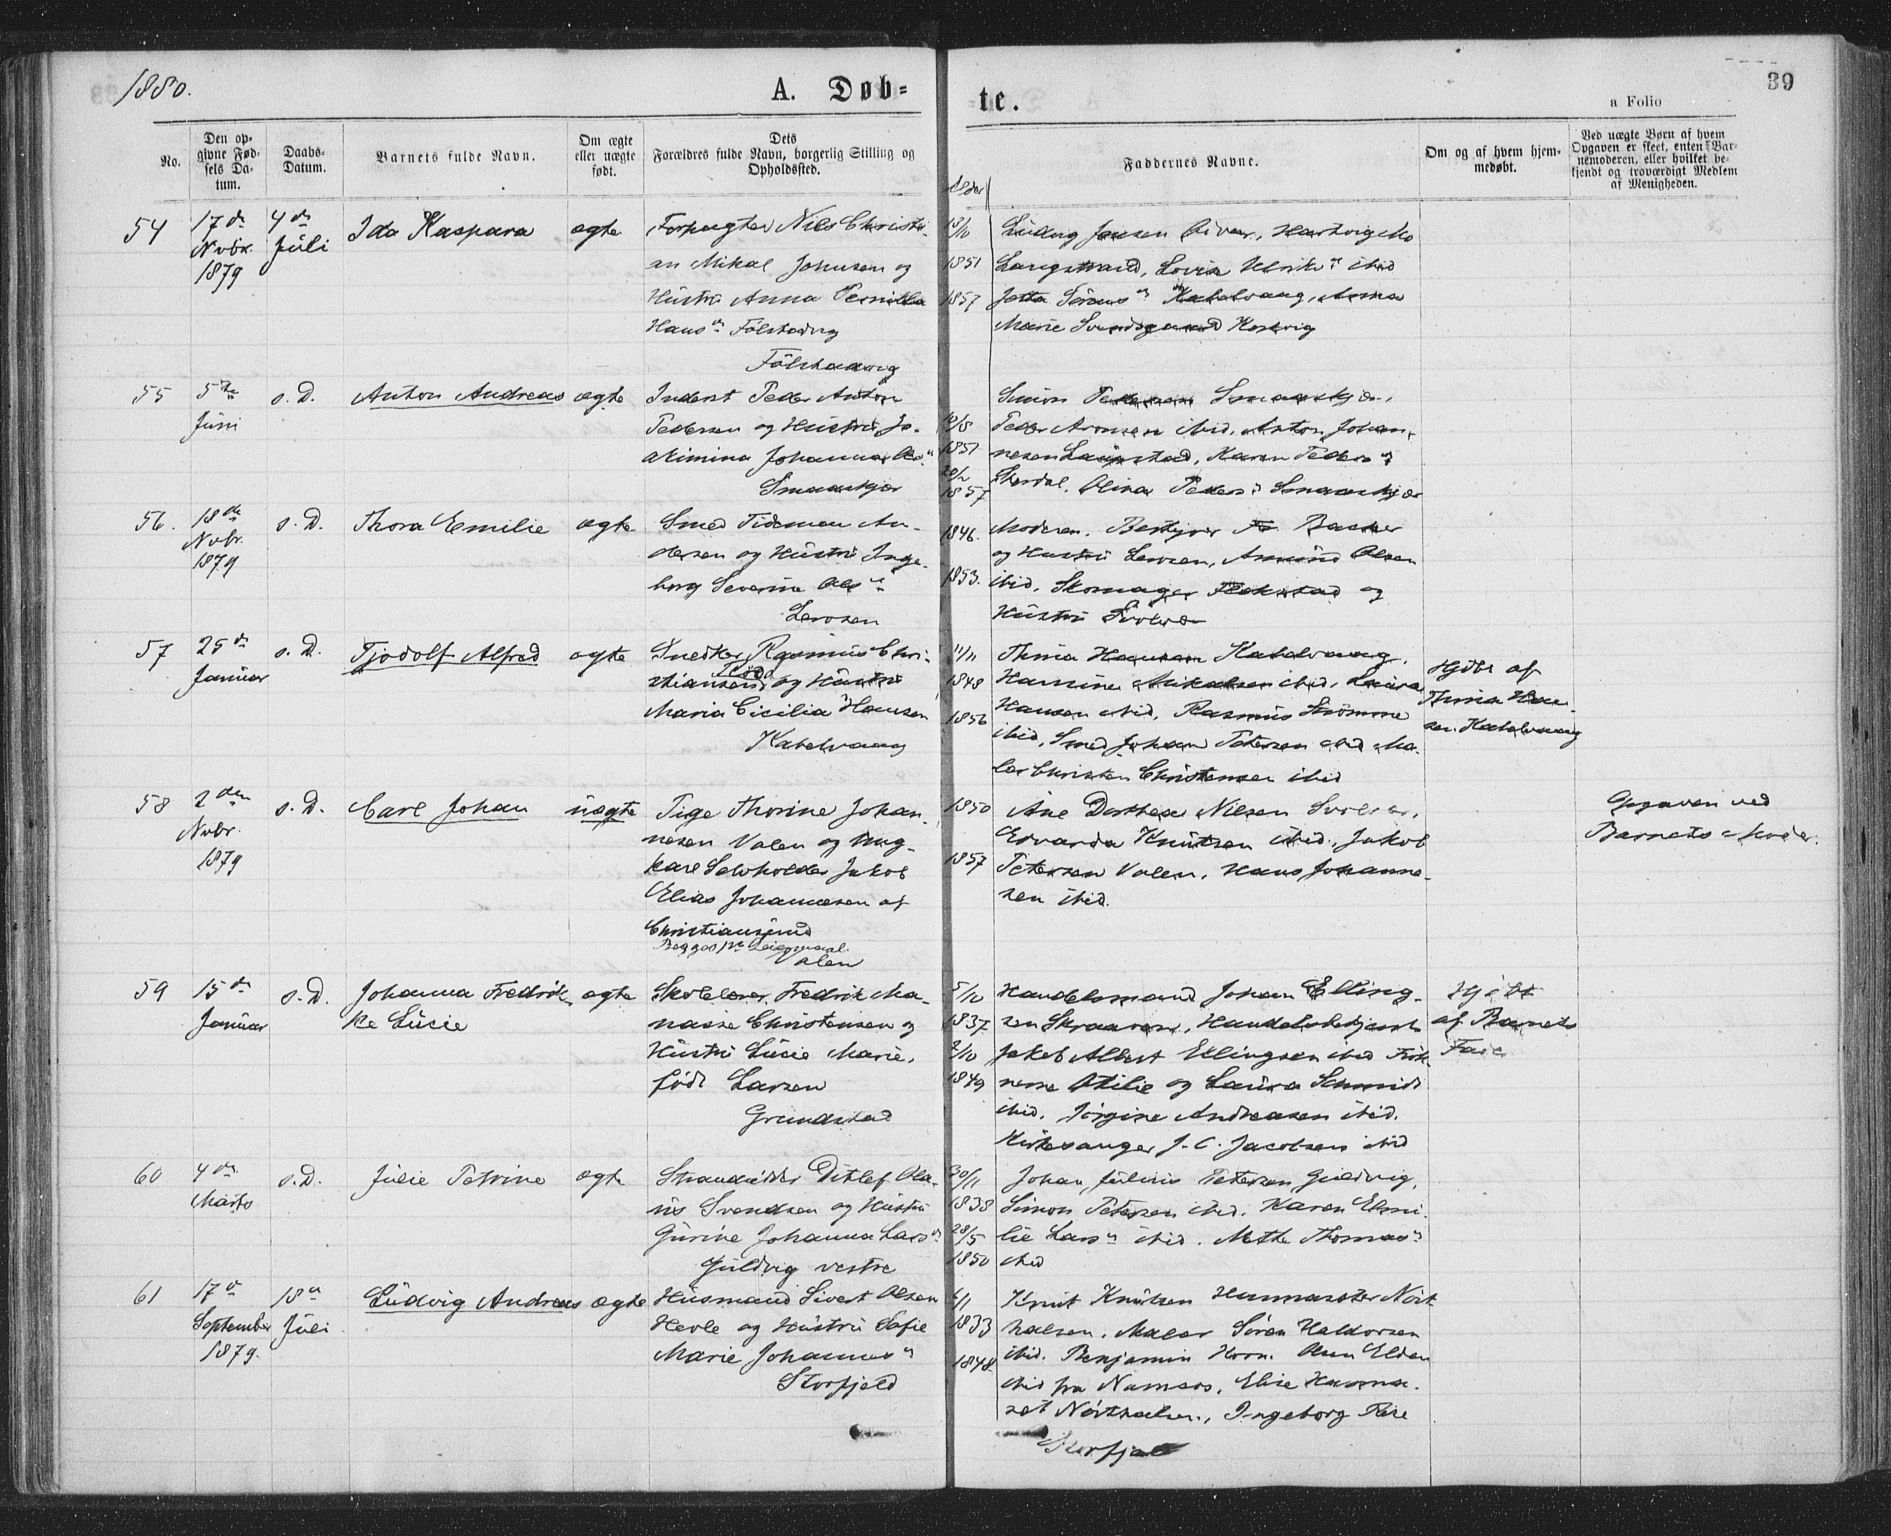 1880.
A. Døb=
te.
39
a Folio
No.
Den op-
givne Fød-
sels Da-
tum.
Daabs-
Datum.
Barnets fulde Navn.
Om ægte
eller uægte
født.
Dets
Forældres fulde Navn, borgerlig Stilling og
Opholdssted.
Alder
Faddernes Navne.
Om og af hvem hjem-
medøbt.
Ved uægte Børn af hvem
Opgaven er skeet, enten Bar-
nemoderen, eller hvilket be-
kjendt og troværdigt Medlem
af Menigheden.
54
17de
Novbr.
1879
4de
Juli
Ida Kaspara
ægte
Forpagter Nils Christi-
an Mikal Johnsen og
Hustru Anna Pernilla
Hans
1851
1857
Ludvig Jensen
Langstrand, Lovise Ulriks ibid
Kabelvaag, Anna
Marie
55
5te
Juni
s. D.
Anton Andreas
ægte
Inderst Peder Anton
Pedersen og Hustru Jo-
akimina Johanna
Smaaskjær
1851
1857
Simon Pedersen Smaaskjær,
Peder Aronsen ibid, Anton Johan-
nesen Laupstad, Karen Peders
Olina Peders Smaaskjær
56.
18de
Novbr.
1879
s. D.
Thora Emilie
ægte
Smed Tideman An-
dersen og Hustru Inge-
borg Severine Ols
1846.
1853.
Moderen. Bestyrer
og Hustru
ibid. Skomager og
Hustru Svolvær
57
25de
Januar
s. D.
Tjodolf Alfred
ægte
Snedker Rasmus Chri-
stiansen og Hustru
Maria Cicilia Hansen
Kabelvaag
11/11
1848
1856
Thina Hansen Kabelvaag,
Hansine Mikalsen ibid, Laura
Hansen ibid, Rasmus Strømme
ibid, Smed Johan Petersen ibid Ma-
ler Christen Christensen ibid
Hjdbt af
Thina Han-
sen Kabelvaag
58
2den
Nvbr.
1879
s. D.
Carl Johan
uægte
Pige Thorine Johan-
nesen Valen og Ung-
karl Selvholder Jakob
Elias Johannesen af
Christiansund
Begges 1ste Leiermaal.
Valen
1850
1857
Ane Dorthea Nilsen Svolvær,
Edvarda Knutsen ibid, Jakob
Petersen Valen, Hans Johanne-
sen ibid.
Opgaven ved
Barnets Moder.
59
15de
Januar
s. D.
Johanna Fredrik-
ke Lucie
ægte
Skolelærer Fredrik Ma-
nasse Christensen og
Hustru Lucie Marie,
født Larsen
Grundstad
5/10
1837
2/10
1849
Handelsmand Johan Elling-
sen Skraaven, Handelsbetjent
Jakob Albert Ellingsen ibid Frøk-
nerne Otilie og Laura Schmidt
ibid. Jørgine Andreasen ibid.
Kirkesanger J. C. Jacobsen ibid
Hjdbt
af Barnets
Fader
60
4de
Marts
s. D.
Julie Petrine
ægte
Strandsidder Ditlef Ola-
us Svendsen og Hustru
Gurine Johanna Lars
Guldvig vestre
30/11
1838
28/5
1850
Johan Julius Petersen Guldvig,
Simon Petersen ibid. Karen Emi-
lie Lars ibid. Mette Thomas
ibid
61
17de
September
1879.
18de
Juli
Ludvig Andreas
ægte
Husmand Sivert Olsen
Hevle og Hustru Sofie
Marie Johannes
Storfjeld
1833
1848
Knut Knutsen
Maler Søren Haldorsen
ibid. Benjamin Horn.
ibid fra Namsos, Elise
Ingeborg
Storfjeld